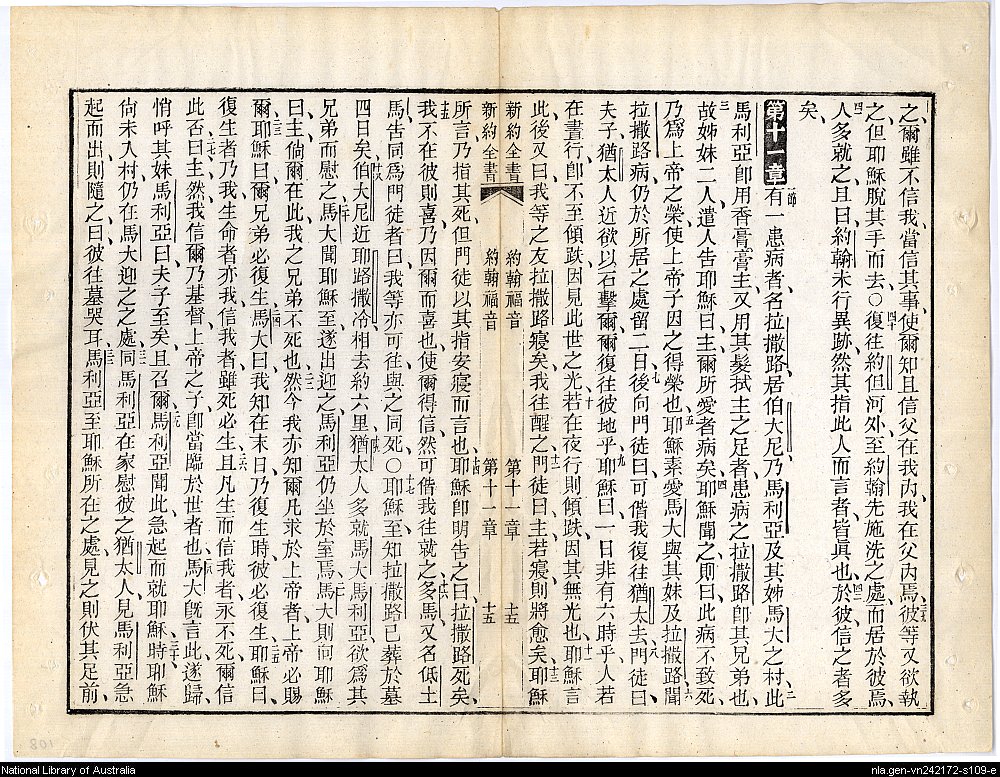 之爾雖不信我當信其事使爾知且信父在我內我在父內焉彼等又欲執
之但耶穌脫其手而去○復往約但河外至約翰先施洗之處而居於彼焉
人多就之且曰約翰未行異跡然其指此人而言者皆眞也於彼信之者多
矣
第十一章 一節 有一患病者名拉撒路居伯大尼乃馬利亞及其姊馬大之村此
馬利亞卽用香膏膏主又用其髮拭主之足者患病之拉撒路卽其兄弟也
故姊妹二人遣人告耶穌曰主爾所愛者病矣耶穌聞之則曰此病不致死
乃爲上帝之榮使上帝子因之得榮也耶穌素愛馬大與其妹及拉撒路聞
拉撒路病仍於所居之處留二日後向門徒曰可偕我復往猶太去門徒曰
夫子猶太人近欲以石擊爾爾復往彼地乎耶穌曰一日非有六時乎人若
在晝行卽不至傾跌因見此世之光若在夜行則傾跌因其無光也耶穌言
此後又曰我等之友拉撒路寢矣我往醒之門徒曰主若寢則將愈矣耶穌
新約全書 約翰福音 第十一章 十五
新約全書 約翰福音 第十一章 十五
所言乃指其死但門徒以其指安寢而言也耶穌卽明告之曰拉撒路死矣
我不在彼則喜乃因爾而喜也使爾得信然可偕我往就之多馬又名低土
馬告同爲門徒者曰我等亦可往與之同死○耶穌至知拉撒路已葬於墓
四日矣伯大尼近耶路撒冷相去約六里猶太人多就馬大馬利亞欲爲其
兄弟而慰之馬大聞耶穌至遂出迎之馬利亞仍坐於室焉馬大則向耶穌
曰主倘爾在此我之兄弟不死也然今我亦知爾凡求於上帝者上帝必賜
爾耶穌曰爾兄弟必復生馬大曰我知在末日乃復生時彼必復生耶穌曰
復生者乃我生命者亦我信我者雖死必生且凡生而信我者永不死爾信
此否曰主然我信爾乃基督上帝之子卽當臨於世者也馬大旣言此遂歸
悄呼其妹馬利亞曰夫子至矣且召爾馬利亞聞此急起而就耶穌時耶穌
尙未入村仍在馬大迎之之處同馬利亞在家慰彼之猶太人見馬利亞急
起而出則隨之曰彼往墓哭耳馬利亞至耶穌所在之處見之則伏其足前
National Library of Australia
nla.gen-vn242172-s109-e